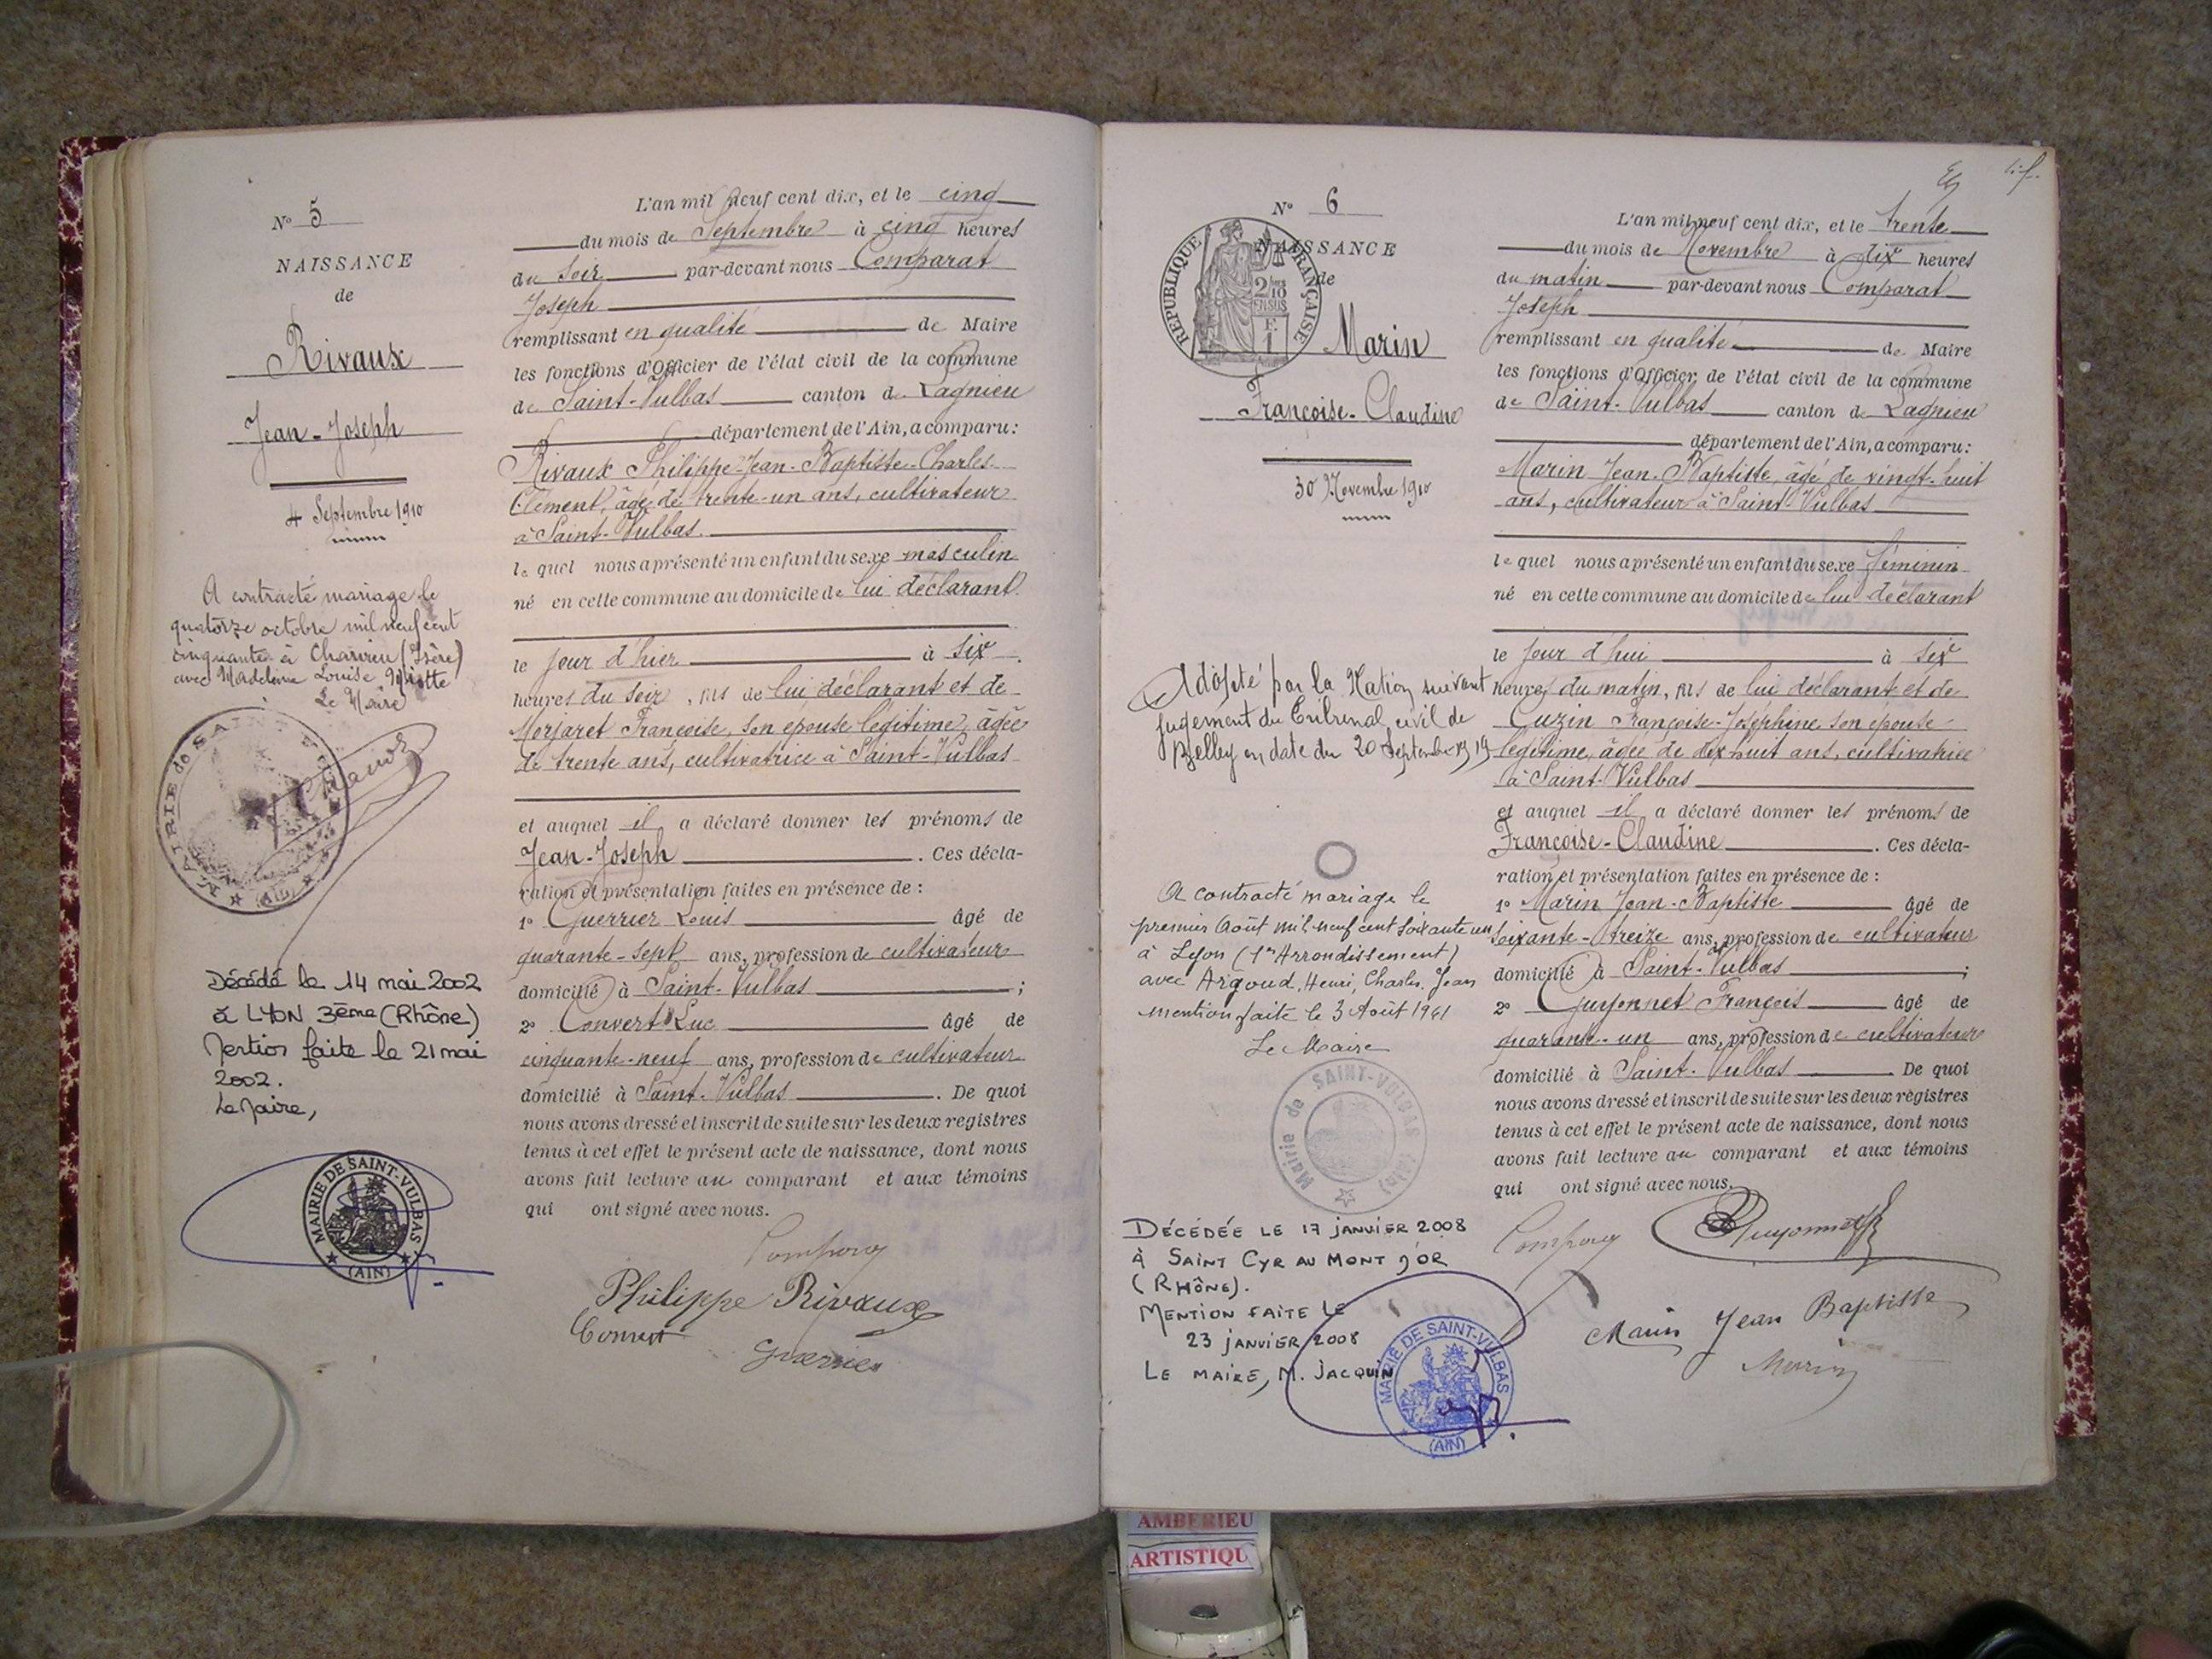 N° 5
NAISSANCE
de
Rivaux
Jean-Joseph
4 Septembre 1910
A contracté mariage le
quatorze octobre mil neuf cent
cinquante à Charvieu (Isère)
avec Madeleine Louise
Le Maire
MAIRIE de SAINT-VULBAS (AIN)
Décédé le 14 mai 2002
à LYON 3ème (Rhône)
Mention faite le 21 mai
2002.
Le Maire,
MAIRIE DE SAINT-VULBAS (AIN)
L'an mil neuf cent dix, et le cinq
du mois de Septembre à cinq heures
du soir par-devant nous Comparat
Joseph
remplissant en qualité de Maire
les fonctions d'Officier de l'état civil de la commune
de Saint-Vulbas canton de Lagnieu
département de l'Ain, a comparu:
Rivaux Philippe-Jean-Baptiste-Charles
Clément, âgé de trente-un ans, cultivateur
à Saint-Vulbas.
le quel nous a présenté un enfant du sexe masculin
né en cette commune au domicile de lui déclarant
le jour d'hier à six
heures du soir, fils de lui déclarant et de
Merjaret Françoise, son épouse légitime, âgée
de trente ans, cultivatrice à Saint-Vulbas
et auquel il a déclaré donner les prénoms de
Jean-Joseph. Ces décla-
ration et présentation faites en présence de :
1° Guerrier Louis âgé de
quarante-sept ans, profession de cultivateur
domicilié à Saint-Vulbas ;
2° Convert Luc âgé de
cinquante-neuf ans, profession de cultivateur
domicilié à Saint-Vulbas. De quoi
nous avons dressé et inscrit de suite sur les deux registres
tenus à cet effet le présent acte de naissance, dont nous
avons fait lecture au comparant et aux témoins
qui ont signé avec nous.
Philippe Rivaux
Convert
Guerrier
N° 6
NAISSANCE
de
REPUBLIQUE FRANÇAISE
Marin
Françoise-Claudine
30 Novembre 1910
Adopté par la Nation suivant
jugement du Tribunal civil de
Belley en date du 20 Septembre 1919
A contracté mariage le
premier Août mil neuf cent soixante un
à Lyon (1er Arrondissement)
avec Argoud, Henri, Charles, Jean
mention faite le 3 Août 1961
Le Maire
Mairie de SAINT-VULBAS (Ain)
DÉCÉDÉE LE 17 JANVIER 2008
À SAINT CYR AU MONT D'OR
(RHÔNE).
MENTION FAITE LE
23 JANVIER 2008
LE MAIRE, M. JACQUIN
MAIRIE DE SAINT-VULBAS (AIN)
L'an mil neuf cent dix, et le trente
du mois de Novembre à dix heures
du matin par-devant nous Comparat
Joseph
remplissant en qualité de Maire
les fonctions d'Officier de l'état civil de la commune
de Saint-Vulbas canton de Lagnieu
département de l'Ain, a comparu:
Marin Jean-Baptiste, âgé de vingt-huit
ans, cultivateur à Saint-Vulbas
le quel nous a présenté un enfant du sexe féminin
né en cette commune au domicile de lui déclarant
le jour d'hui à six
heures du matin, fils de lui déclarant et de
Cuzin Françoise-Joséphine, son épouse
légitime, âgée de dix huit ans, cultivatrice
à Saint-Vulbas
et auquel il a déclaré donner les prénoms de
Françoise-Claudine. Ces décla-
ration et présentation faites en présence de :
1° Marin Jean-Baptiste âgé de
soixante-treize ans, profession de cultivateur
domicilié à Saint-Vulbas ;
2° Guyonnet François âgé de
quarante-un ans, profession de cultivateur
domicilié à Saint-Vulbas. De quoi
nous avons dressé et inscrit de suite sur les deux registres
tenus à cet effet le présent acte de naissance, dont nous
avons fait lecture au comparant et aux témoins
qui ont signé avec nous.
Guyonnet
Marin Jean Baptiste
Marin
AMBERIEU
ARTISTIQU